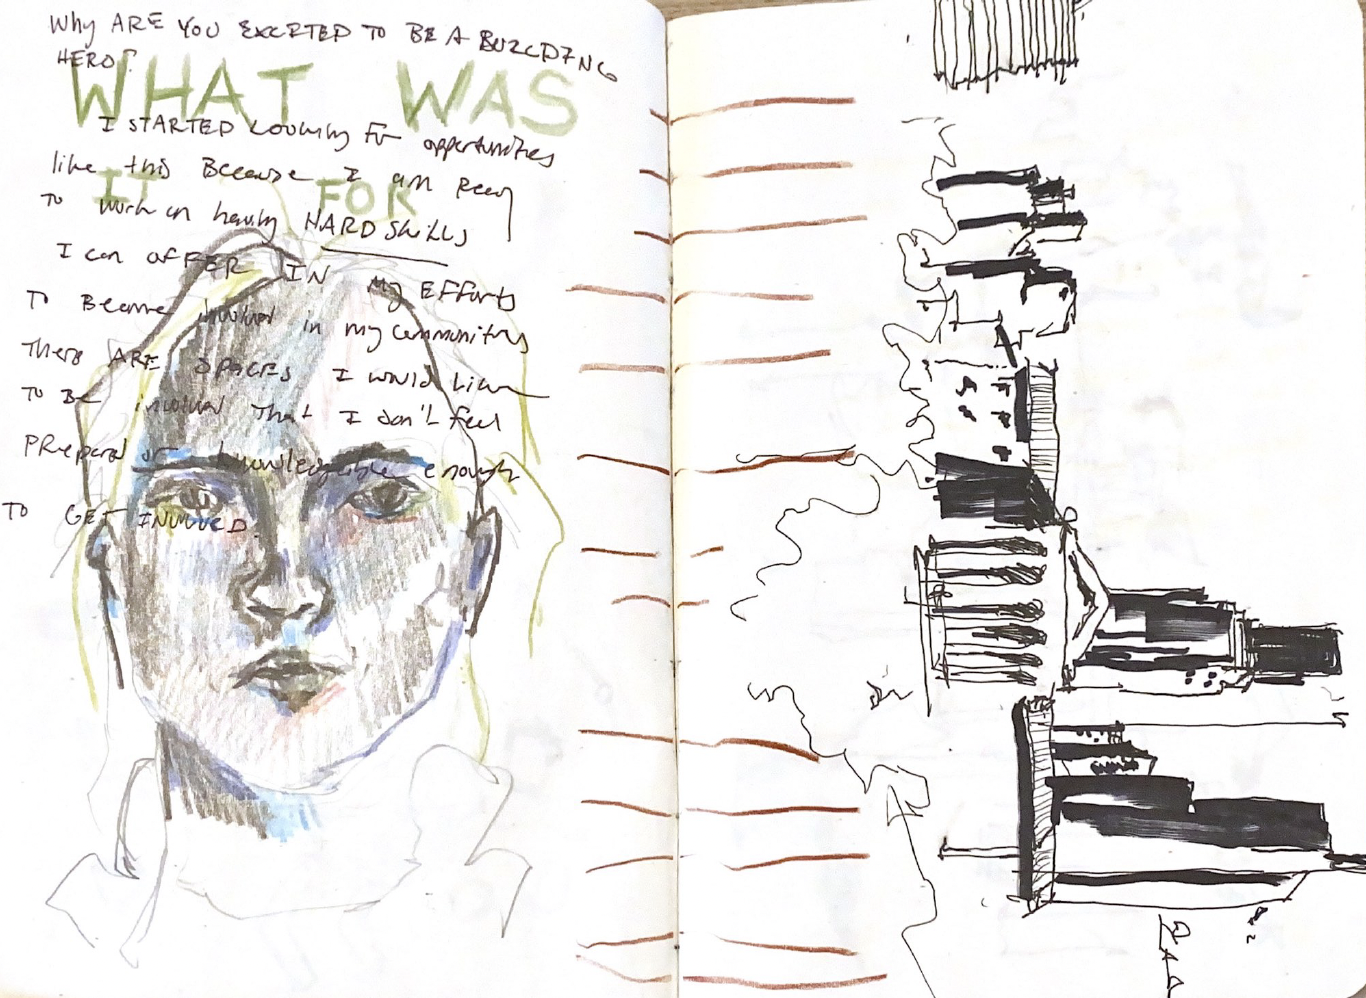 Why ARE YOU EXCITED TO BE A BUILDING
HERO?
WHAT WAS
I STARTED Looking For opportunities
like this Because I am Ready
IT FOR
To work on having HARD Skills
I can offER IN My Efforts
To Become involved in my community
There ARE SPACES I would Like
To Be involved That I don't feel
PRepared or knowledgeable enough
TO GET INVOLVED.